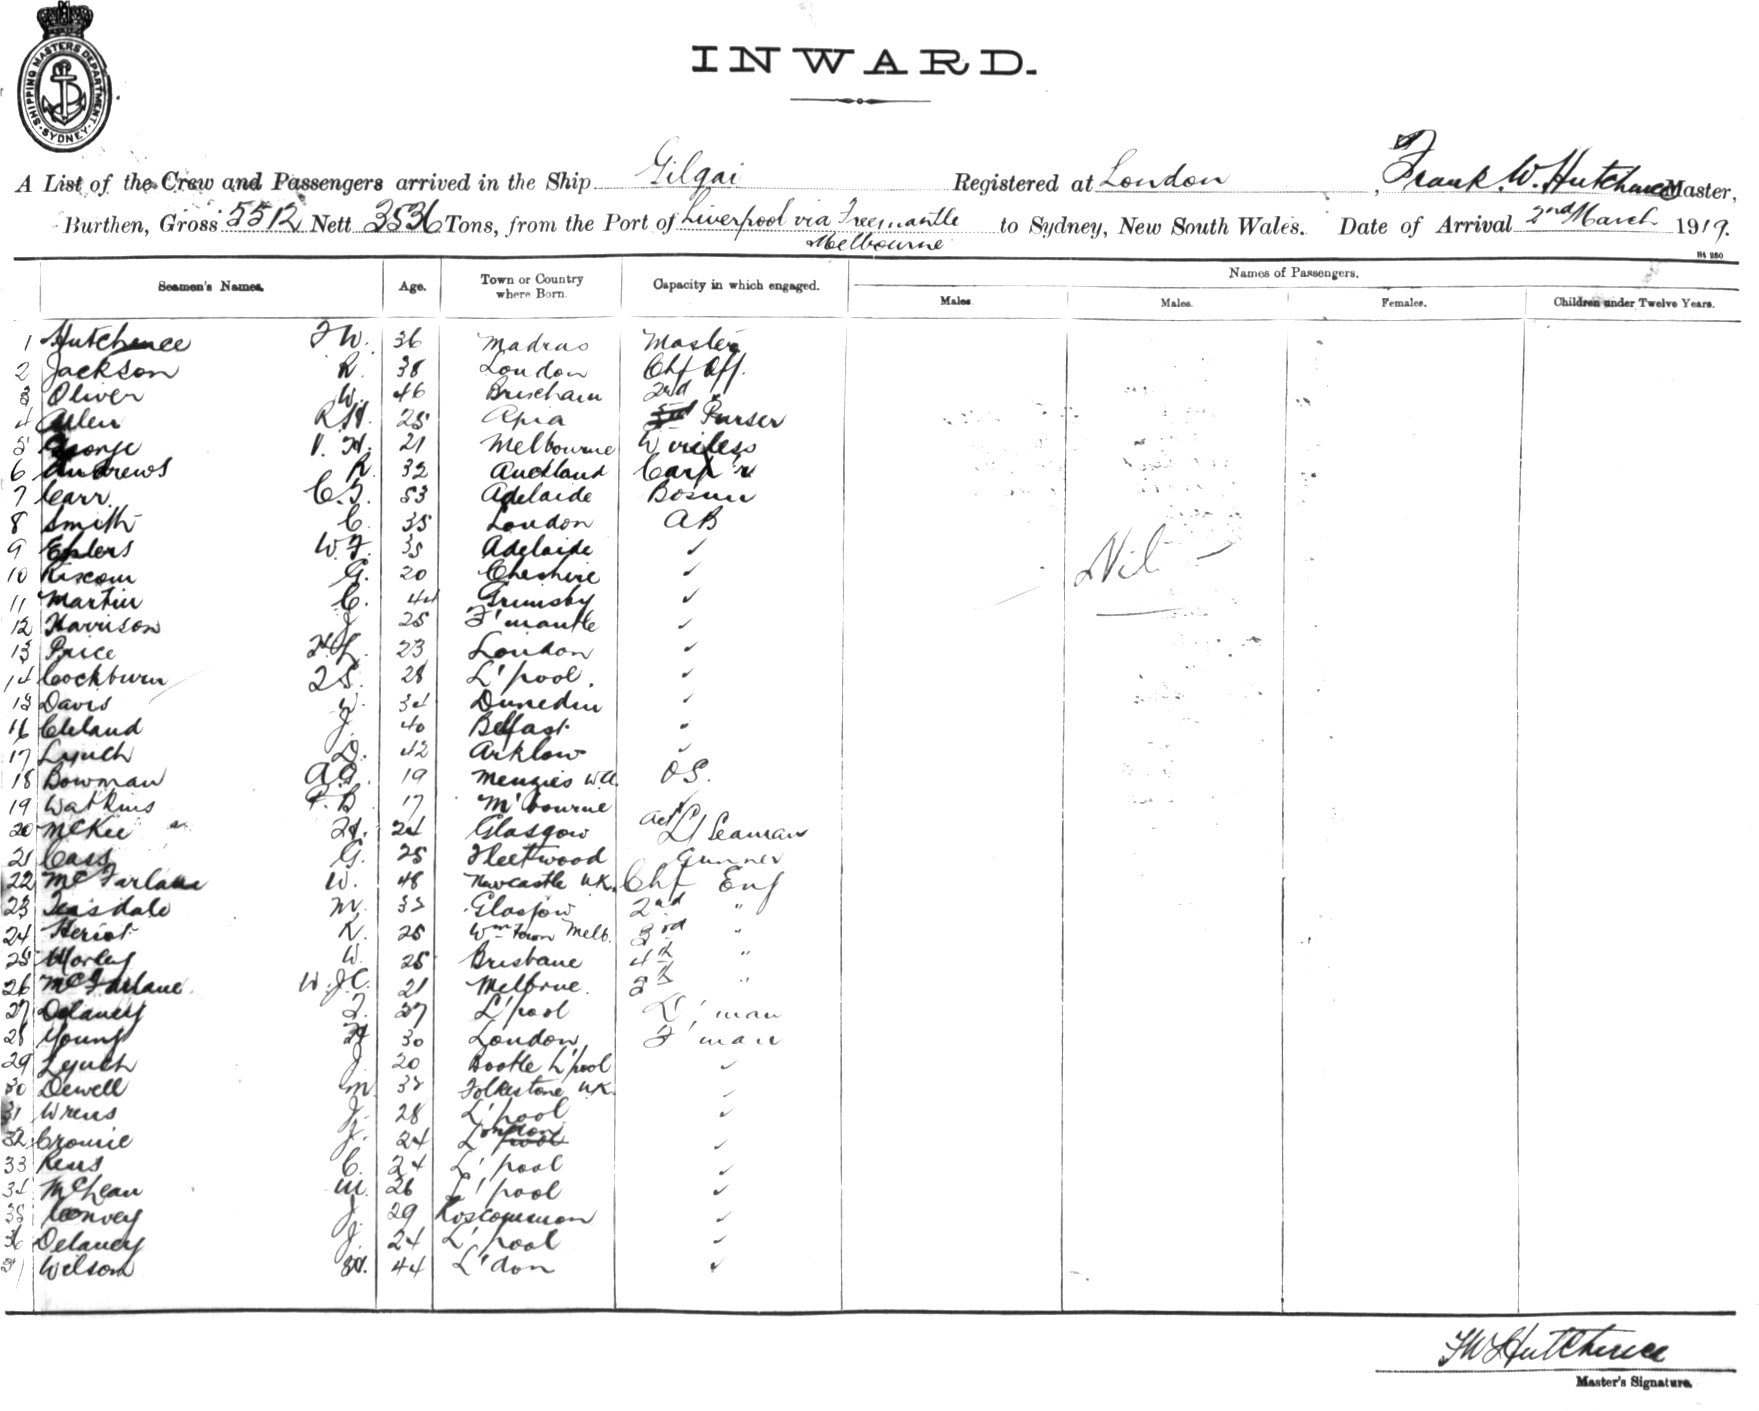 SHIPPING MASTERS DEPARTMENT. SYDNEY.
INWARD.
A List of the Crew and Passengers arrived in the Ship Gilgai Registered at London, Frank. W. Hutchence Master,
Burthen, Gross 5512 Nett 3536 Tons, from the Port of Liverpool via Freemantle to Sydney, New South Wales. Date of Arrival 2nd March 1919.
Melbourne
Seamen's Names. Age. Town or Country where Born. Capacity in which engaged. Names of Passengers.
Males. Males. Females. Children under Twelve Years.
1 Hutchence F W. 36 Madras Master
2 Jackson R. 38 London Chf Off.
3 Oliver W. 46 Brixham 2nd
4 Allen R.H. 25 Apia 3rd Purser
5 George V. H. 21 Melbourne Wireless
6 Andrews R. 32 Auckland Carp'r
7 Carr C.J. 53 Adelaide Bosun
8 Smith C. 35 London AB
9 Ehlers W.F. 35 Adelaide ✓
10 G. 20 Cheshire ✓
Nil
11 Martin C. 44 Grimsby ✓
12 Harrison J. 25 F'mantle ✓
13 Price 23 London ✓
14 Cockburn 28 L'pool. ✓
15 Davis W. 34 Dunedin ✓
16 Cleland J. 40 Belfast ✓
17 Lynch D. 42 Arklow ✓
18 Bowman A.G. 19 Menzies W.A. OS.
19 Watkins F.B 17 M'bourne ✓
20 McKee H. 24 Glasgow Act L/Seaman
21 Cass G. 25 Fleetwood Gunner
22 McFarlane W. 48 Newcastle U.K. Chf Eng
23 Teasdale M. Glasgow 2nd "
24 Heriot R. 25 Wmtown Melb. 3rd "
25 Morley W. 25 Brisbane 4th "
26 McFarlane. W.J.C. 21 Melbrne. 5th "
27 Delaney 37 L'pool D'man
28 Young H 30 London F'man
29 Lynch J 20 Bootle L'pool ✓
30 Dewell M Folkestone U.K. ✓
31 Wrens J. 28 L'pool ✓
32 Crowie J. 24 London ✓
33 Kens C. 24 L'pool ✓
34 McLean M. 26 L'pool ✓
35 Convey J. 29 Roscommon ✓
36 Delaney J. 24 L'pool ✓
37 Wilson W. 44 L'don ✓
FW Hutchence
Master's Signature.